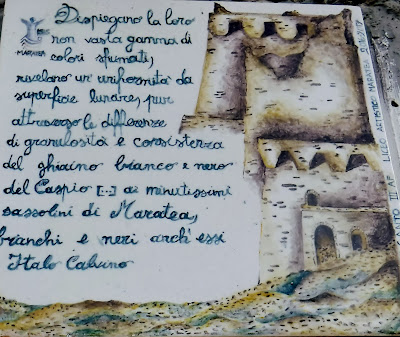 Dispiegano la loro
non vasta gamma di
colori sfumati,
rivelano un'uniformità da
superficie lunare, pur
attraverso le differenze
di granulosità e consistenza
del ghiaino bianco e nero
del Caspio [...] ai minutissimi
sassolini di Maratea,
bianchi e neri anch'essi
Italo Calvino
MARATEA
LICEO ARTISTICO MARATEA